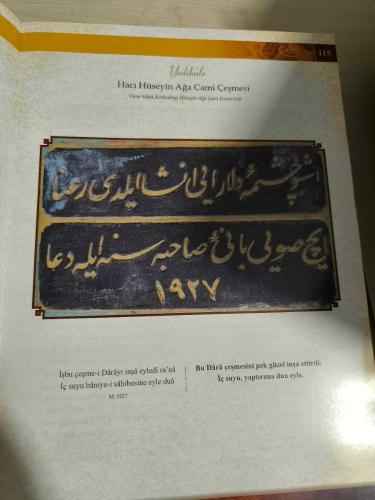 115
Yedikule
Hacı Hüseyin Ağa Cami Çeşmesi
اشبو چشمۀ دلارایی انشا ایلدی رعنا
ایچ صویی بانیٔ صاحبه سنه ایله دعا
١٩٢٧
İşbu çeşme-i Dârâyı inşâ eyledi ra'nâ
İç suyu bâniye-i sâhibesine eyle duâ
M. 1927
Bu Dârâ çeşmesini pek güzel inşa ettirdi.
İç suyu, yaptırana dua eyle.